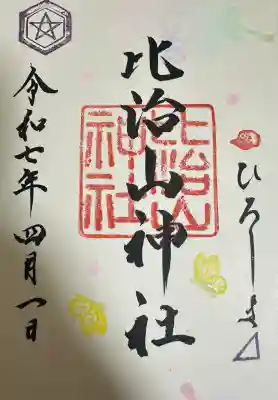 ひろしま
比治山神社
比治山
神社
令和七年四月一日